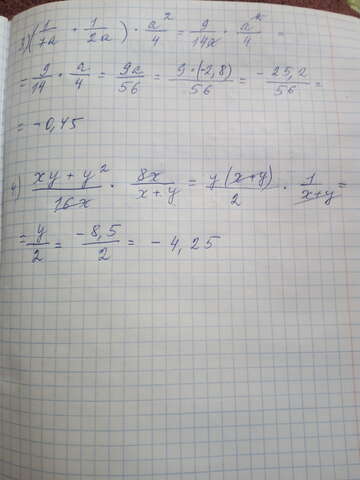 3) (1/7a + 1/2a) · a²/4 = 9/14a · a²/4 =
= 9/14 · a/4 = 9a/56 = 9·(-2,8)/56 = -25,2/56 =
= -0,45
4) xy + y²/16x · 8x/x+y = y(x+y)/2 · 1/x+y =
= y/2 = -8,5/2 = -4,25